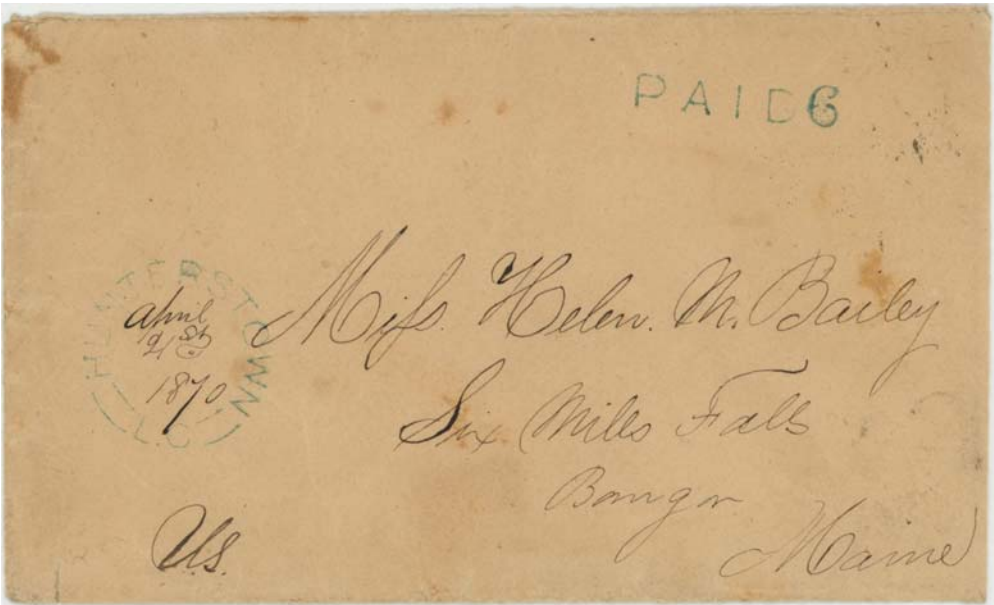 PAID 6
HUNTERSTOWN
april
21st
1870
L.C
Miss. Helen. M. Bailey
Six Miles Falls
Bangor
Maine
U.S.